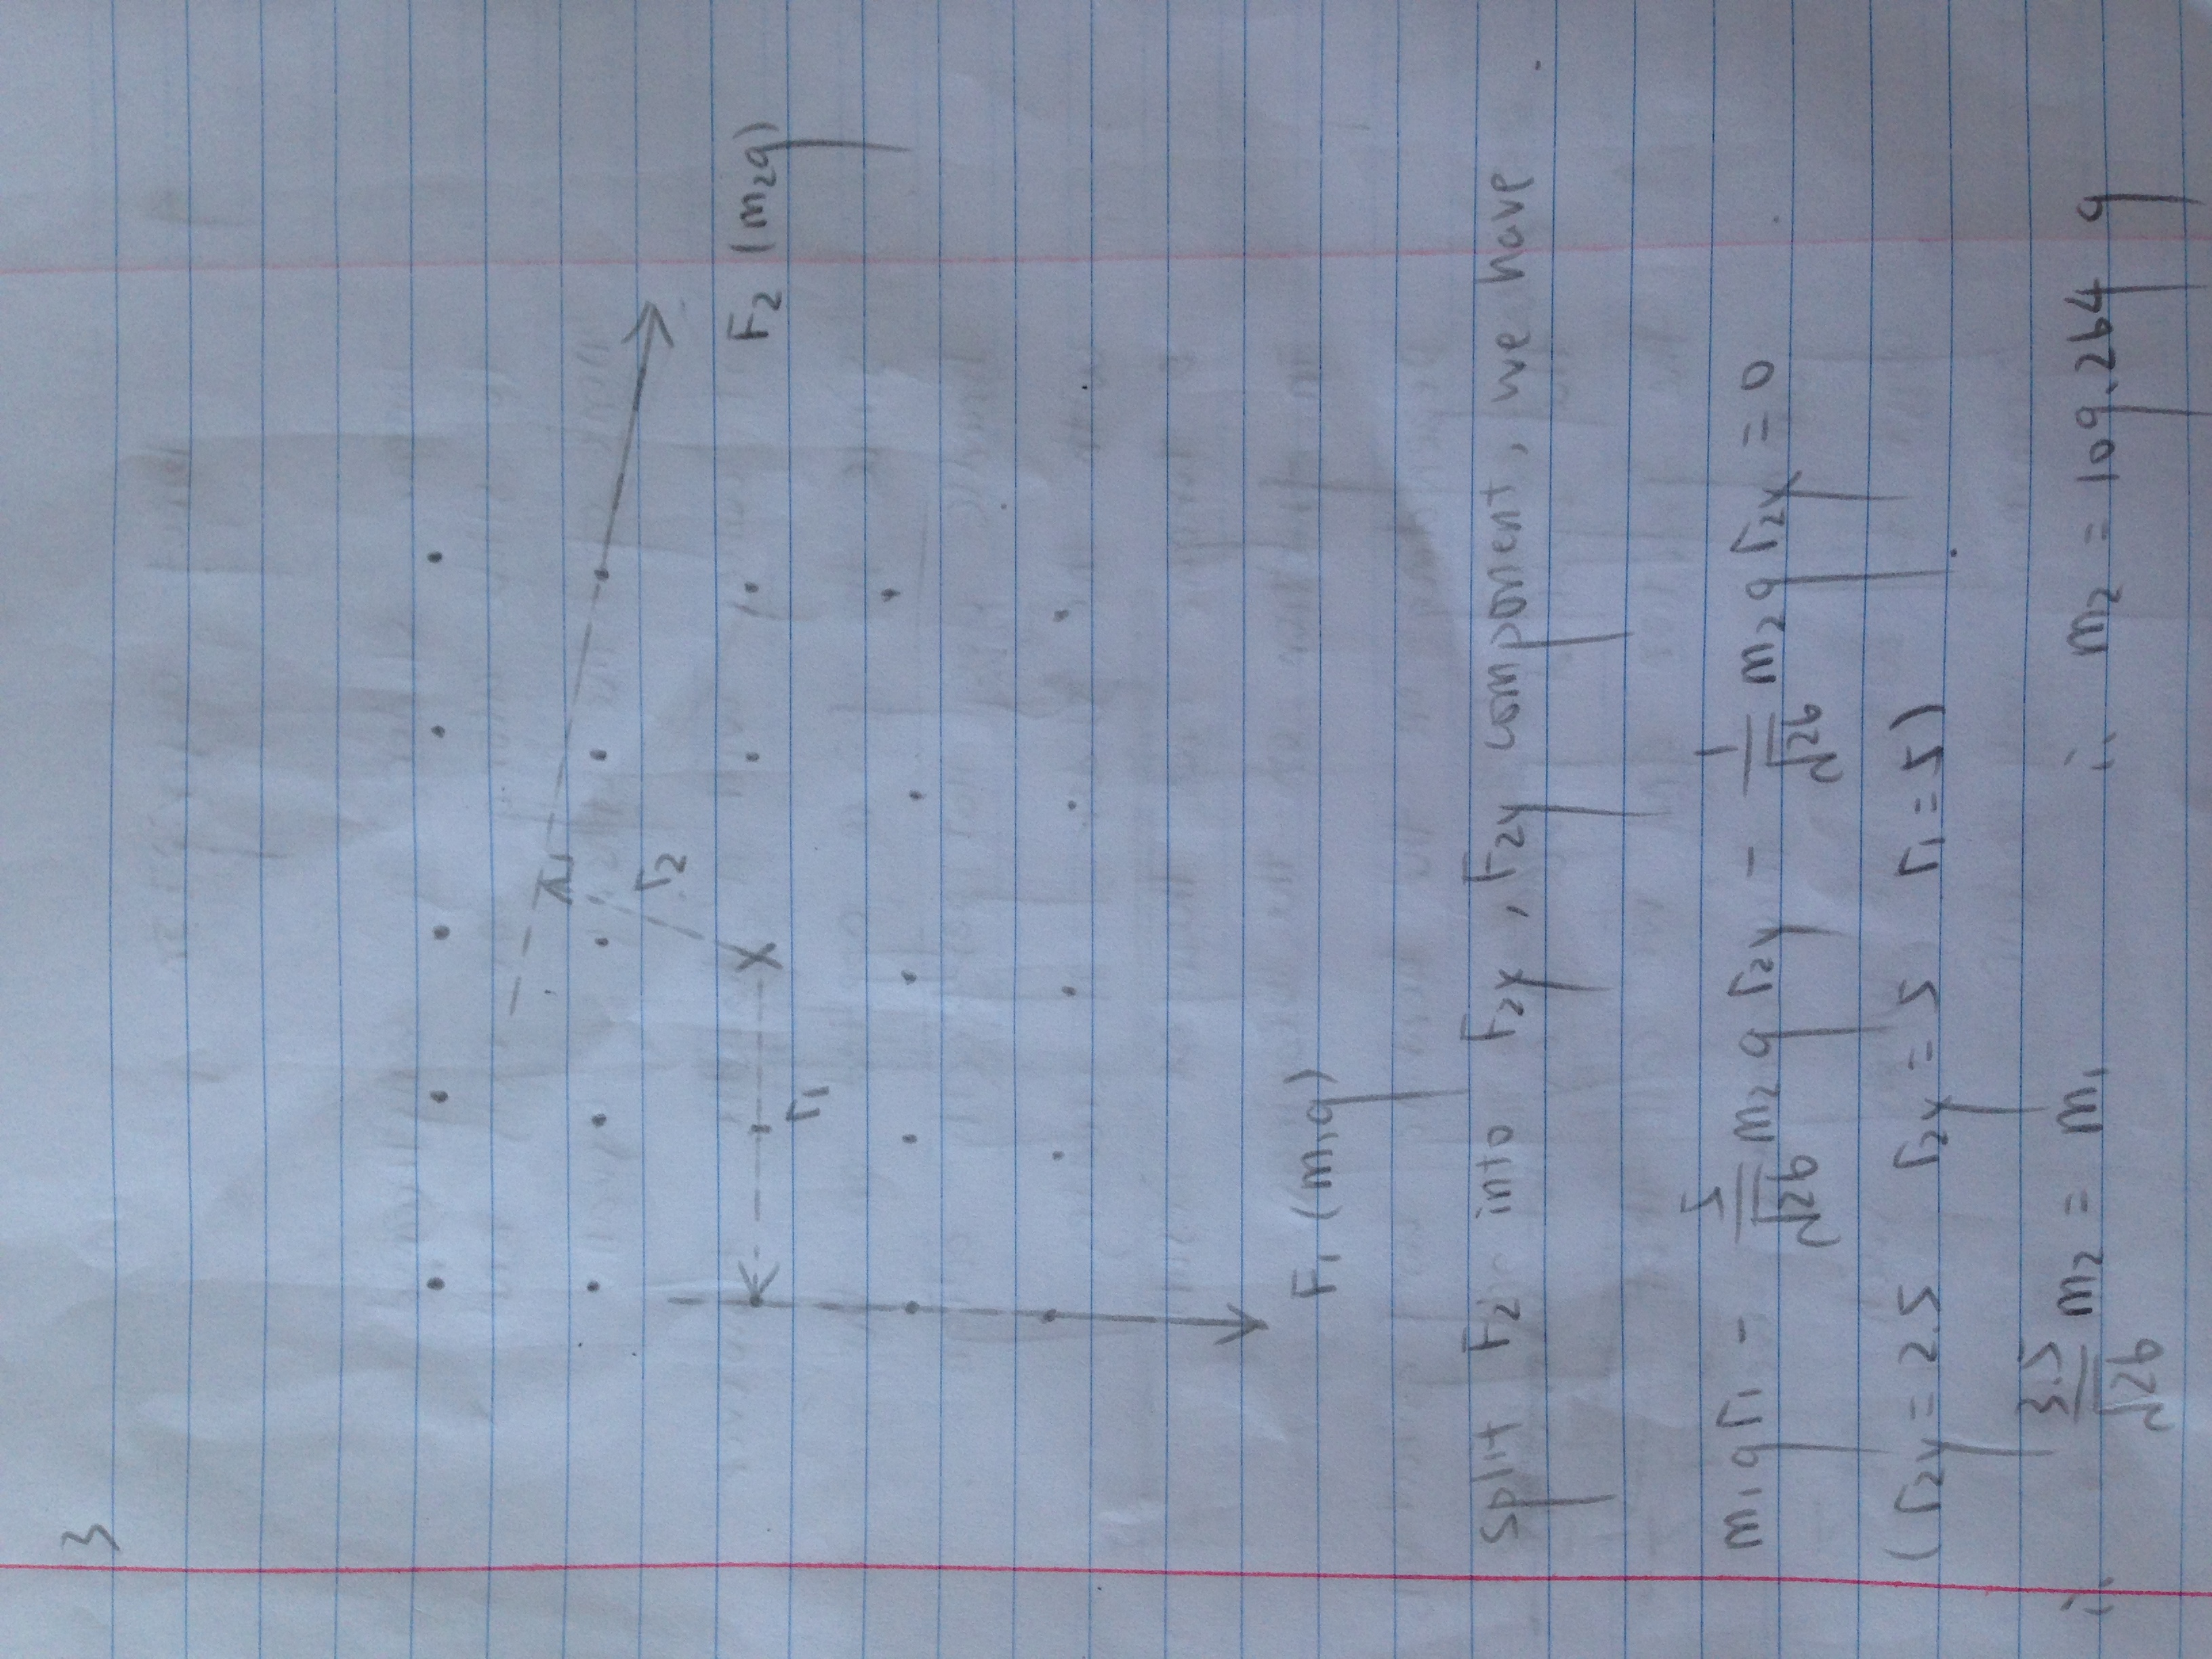 3
F₂ (m₂g)
r₂
r₁
F₁ (m₁g)
split F₂ into F₂ₓ, F₂y component, we have
m₁gr₁ - 5/√26 m₂g r₂y - 1/√26 m₂g r₂ₓ = 0
(r₂y = 2.5 r₂ₓ = 5 r₁ = 5)
∴ 3.5/√26 m₂ = m₁ ∴ m₂ = 109.264 g